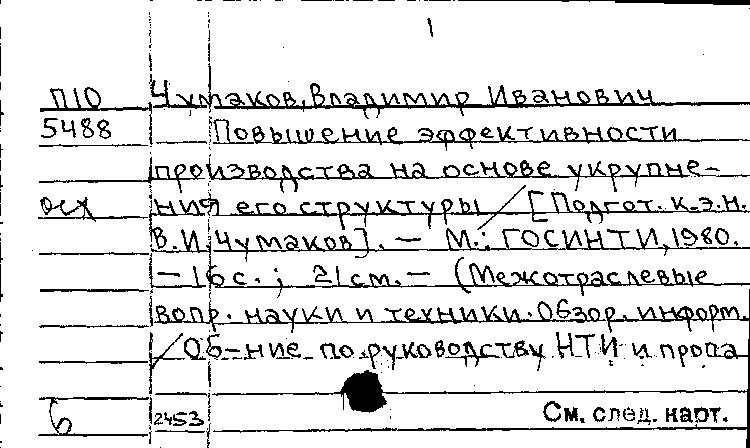 1
П10 Чумаков, Владимир Иванович
5488 Повышение эффективности
производства на основе укрупне-
ния его структуры / [Подгот. к.э.н.
В.И. Чумаков]. — М.: ГОСИНТИ, 1980.
— 16 с. ; 21 см. — (Межотраслевые
вопр. науки и техники. Обзор. информ.
/ Об-ние по руководству НТИ и пропа
6 2453 См. след. карт.